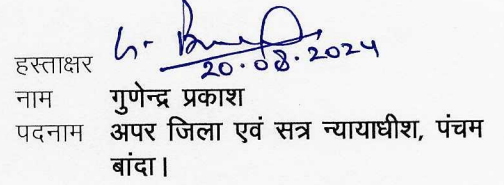 हस्ताक्षर
20.08.2024
नाम गुणेन्द्र प्रकाश
पदनाम अपर जिला एवं सत्र न्यायाधीश, पंचम
बांदा।